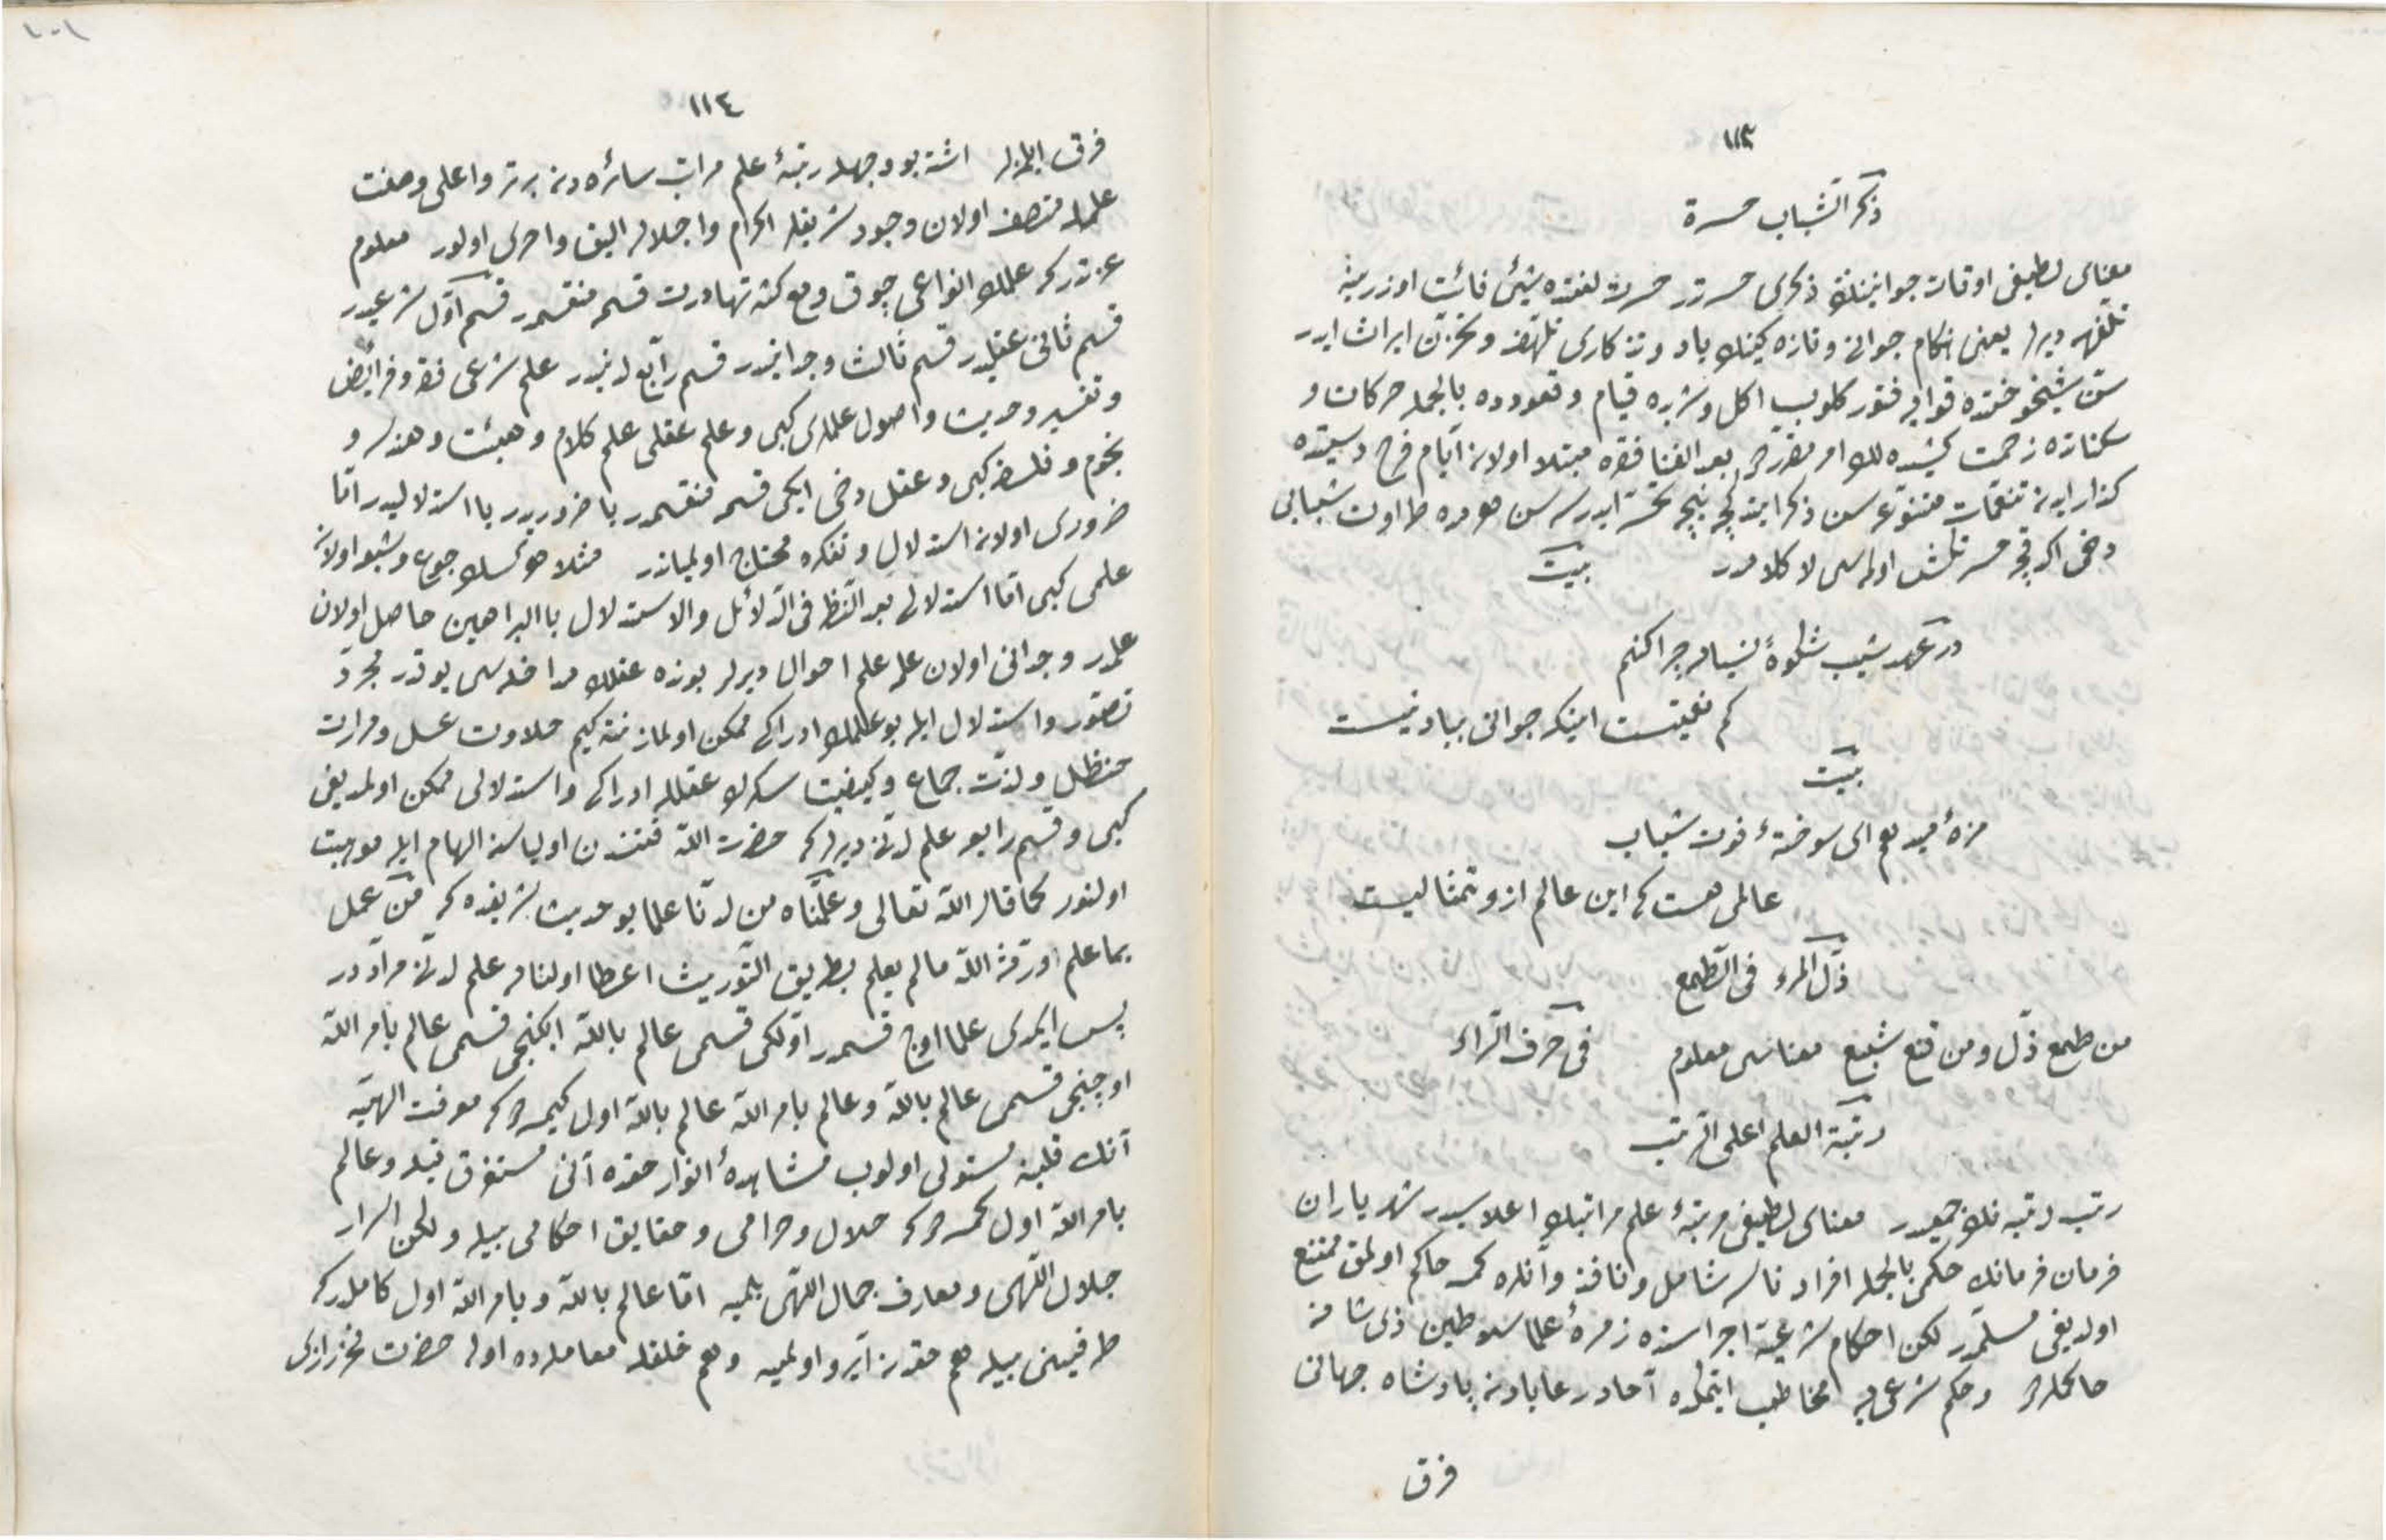 ١١٣
ذكر الشباب حسرة
معناى لطيفى اوقات جوانينڭ ذكرى حسرتدر حسرت لغتده شيئ فائت اوزرينه
تلهف ديرلر يعنى هنكام جوانى وتازه كينك ياد وتذكارى تلهف وتحزن ايراث ايدر
سن شيخوختده قوايه فتور كلوب اكل وشربه قيام وقعوده بالجمله حركات و
سكناتده زحمت كشيده لك امر مقرر بعد الغنا فقره مبتلا اولان ايام فرح وسعتده
كذار ايدن تنعمات متنوعه سن ذكر ايتدكجه نيجه تحسر ايدرسه سن هرمده طراوت شبابى
دخى اكدقجه حسرتكش اولمسى لا كلامدر بيت
در عهد شيب شكوۀ نسيان چرا كنم
كم نعمتيست اينكه جوانى بياد نيست
بيت
مزه مبند بهم اى سوختۀ فوت شباب
عالمى هست كه اين عالم ازو تمثاليست
ذل المرء فى الطمع
من طمع ذل ومن قنع شبع معناسى معلوم فى حرف الراء
رتبة العلم اعلى الرتب
رتب رتبه نڭ جمعيدر معناى لطيفى مرتبۀ علم مراتبڭ اعلاسيدر شهرياران
فرمان فرمانڭ حكمى بالجمله افراد ناسه شامل ونافذ وانلره كمسه حاكم اولمق ممتنع
اولديغى مسلمدر لكن احكام شرعيه اجراسنده زمرۀ علما سلاطين ذى شانه
حاكملردر وحكم شرعى يه مخاطب ايتمكده آحاد رعايادن پادشاه جهانى
فرق
١١٤
فرق ايلمزلر اشته بو وجهله رتبۀ علم مراتب سائره دن برتر واعلى وصفت
علمله متصف اولان وجود شريفه اكرام واجلاله اليق واحرى اولور معلوم
عزتدر كه علمڭ انواعى چوق ومع كثرتها درت قسمه منقسمدر قسم اول شرعيدر
قسم ثانى عقليدر قسم ثالث وجدانيدر قسم رابع لدنيدر علم شرعى فقه وفرائض
وتفسير وحديث واصول علملرى كبى وعلم عقلى علم كلام وهيئت وهندسه و
نجوم وفلسفه كبى وعقلى دخى ايكى قسمه منقسمدر يا ضروريدر يا استدلاليدر اما
ضرورى اولان استدلال وتفكره محتاج اولمياندر مثلا هر كسڭ جوع وشبعه اولان
علمى كبى اما استدلالى بعد النظر فى الدلائل والاستدلال باالبراهين حاصل اولان
علمدر وجدانى اولان علمه علم احوال ديرلر بونده عقلڭ مداخله سى يوقدر مجرد
تصور واستدلال ايله بو علمڭ ادراكى ممكن اولماز نته كيم حلاوت عسل ومرارت
حنظل ولذت جماع وكيفيت سكر لا عقلله ادراكى واستدلالى ممكن اولمديغى
كبى وقسم رابعه علم لدنى ديرلر كه حضرت الله قتندن اولياسنه الهام ايله موهبت
اولنور كما قال الله تعالى وعلمناه من لدنا علما بو حديث شريفده كه من عمل
بما علم اورثه الله مالم يعلم بطريق التوريث اعطا اولنان علم لدنى مراددر
پس ايمدى علما اوچ قسمدر اولكى قسمى عالم بالله ايكنجى قسمى عالم بامر الله
اوچنجى قسمى عالم بالله وعالم بامر الله عالم بالله اول كيمسه در كه معرفت الهيه
آنڭ قلبنه مستولى اولوب مشاهدۀ انوار حقده آنى مستغرق قيله وعالم
بامر الله اول كمسه در كه حلال وحرامى وحقايق احكامى بيله ولكن اسرار
جلال اللهى ومعارف جمال اللهى بلميه اما عالم بالله وبامر الله اول كاملدر كه
طرفينى بيله هم حقدن آيرو اولميه وهم خلقله معامله ده اوله حضرت فخر رازى